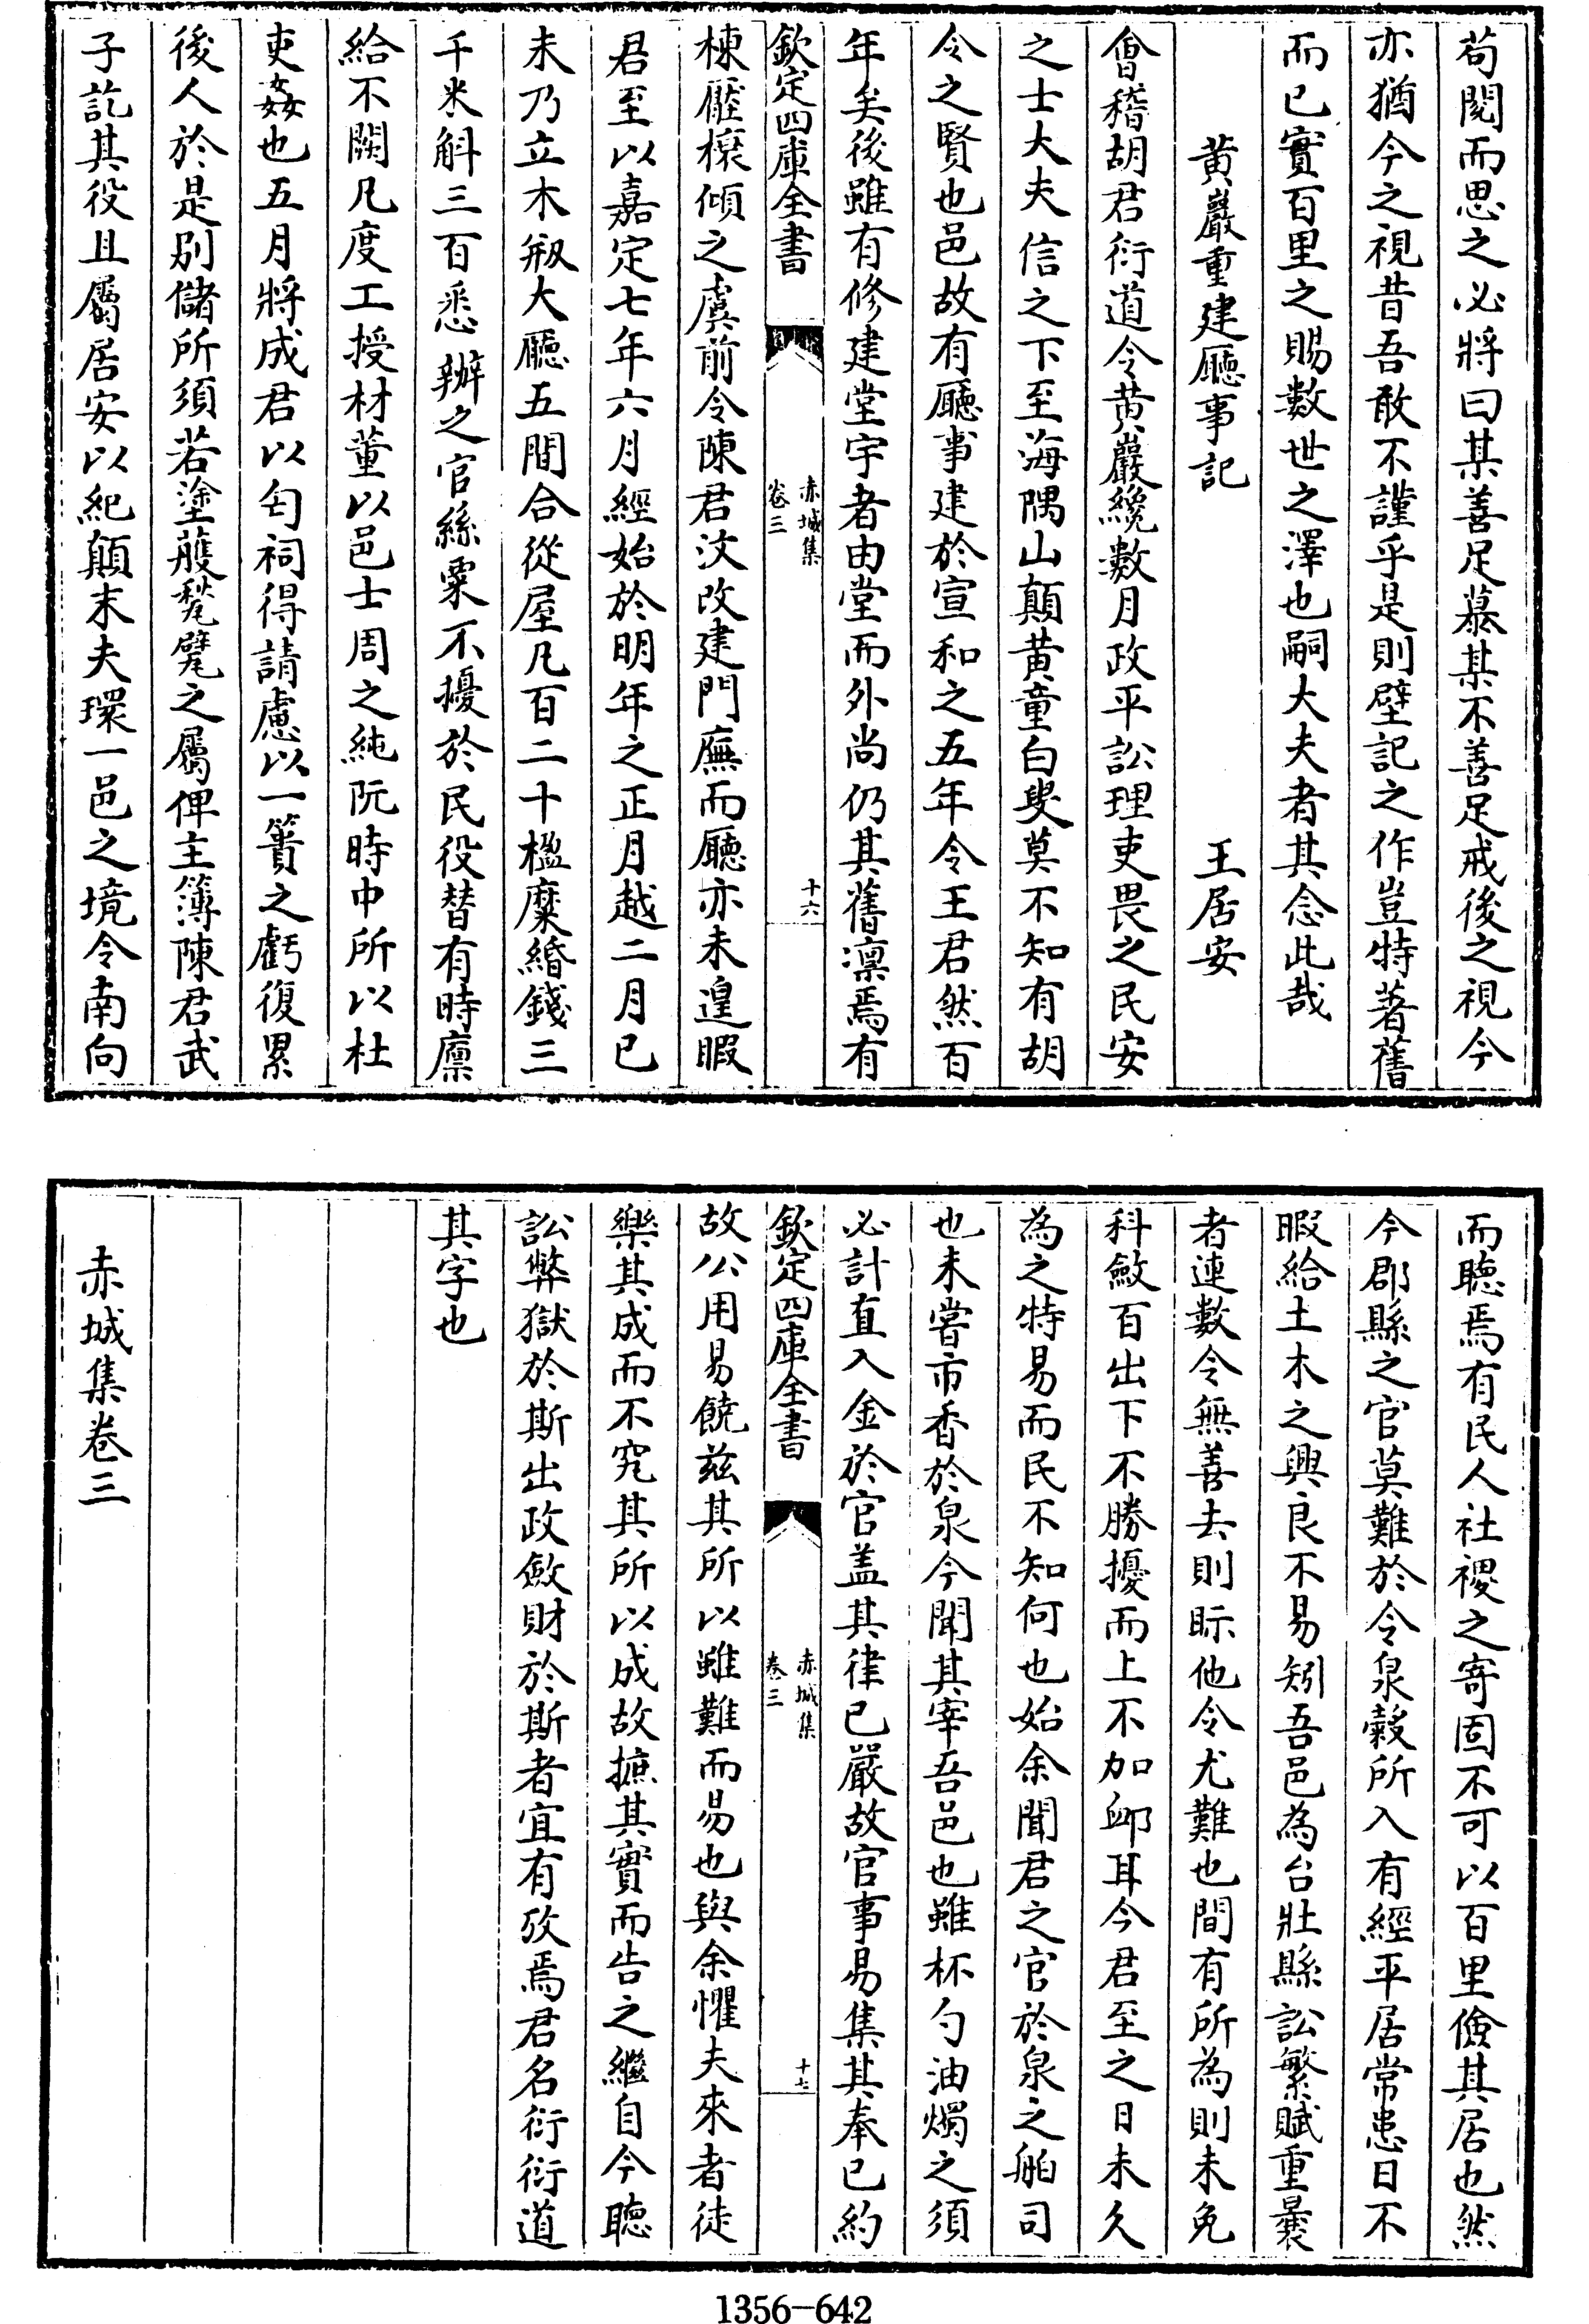 苟閲而思之必將曰某善足慕某不善足戒後之視今
亦猶今之視昔吾敢不謹乎是則壁記之作豈特著舊
而已實百里之賜數世之澤也嗣大夫者其念此哉
黄巖重建廳事記 王居安
㑹稽胡君衍道令黄巖纔數月政平訟理吏畏之民安
之士大夫信之下至海隅山顛黄童白叟莫不知有胡
令之賢也邑故有廳事建於宣和之五年令王君然百
年矣後雖有修建堂宇者由堂而外尚仍其舊凛焉有
欽定四庫全書
赤城集
卷三
十六
棟壓榱傾之虞前令陳君汶改建門廡而廳亦未遑暇
君至以嘉定七年六月經始於明年之正月越二月已
未乃立木剏大廳五間合從屋凡百二十楹糜緡錢三
千米斛三百悉辦之官絲粟不擾於民役替有時廪
給不闕凡度工授材董以邑士周之純阮時中所以杜
吏姦也五月將成君以匄祠得請慮以一簣之虧復累
後人於是别儲所須若塗雘甃甓之屬俾主簿陳君武
子訖其役且屬居安以紀顛末夫環一邑之境令南向
而聴焉有民人社稷之寄固不可以百里儉其居也然
今郡縣之官莫難於令泉穀所入有經平居常患日不
暇給土木之興良不易矧吾邑為台壯縣訟繁賦重曩
者連數令無善去則眎他令尤難也間有所為則未免
科斂百出下不勝擾而上不加䘏耳今君至之日未久
為之特易而民不知何也始余聞君之官於泉之舶司
也未嘗市香於泉今聞其宰吾邑也雖杯勺油燭之須
必計直入金於官盖其律已嚴故官事易集其奉已約
欽定四庫全書
赤城集
卷三
十七
故公用易饒兹其所以雖難而易也與余懼夫來者徒
樂其成而不究其所以成故摭其實而告之繼自今聴
訟弊獄於斯出政斂財於斯者宜有攷焉君名衍衍道
其字也
赤城集卷三
1356-642